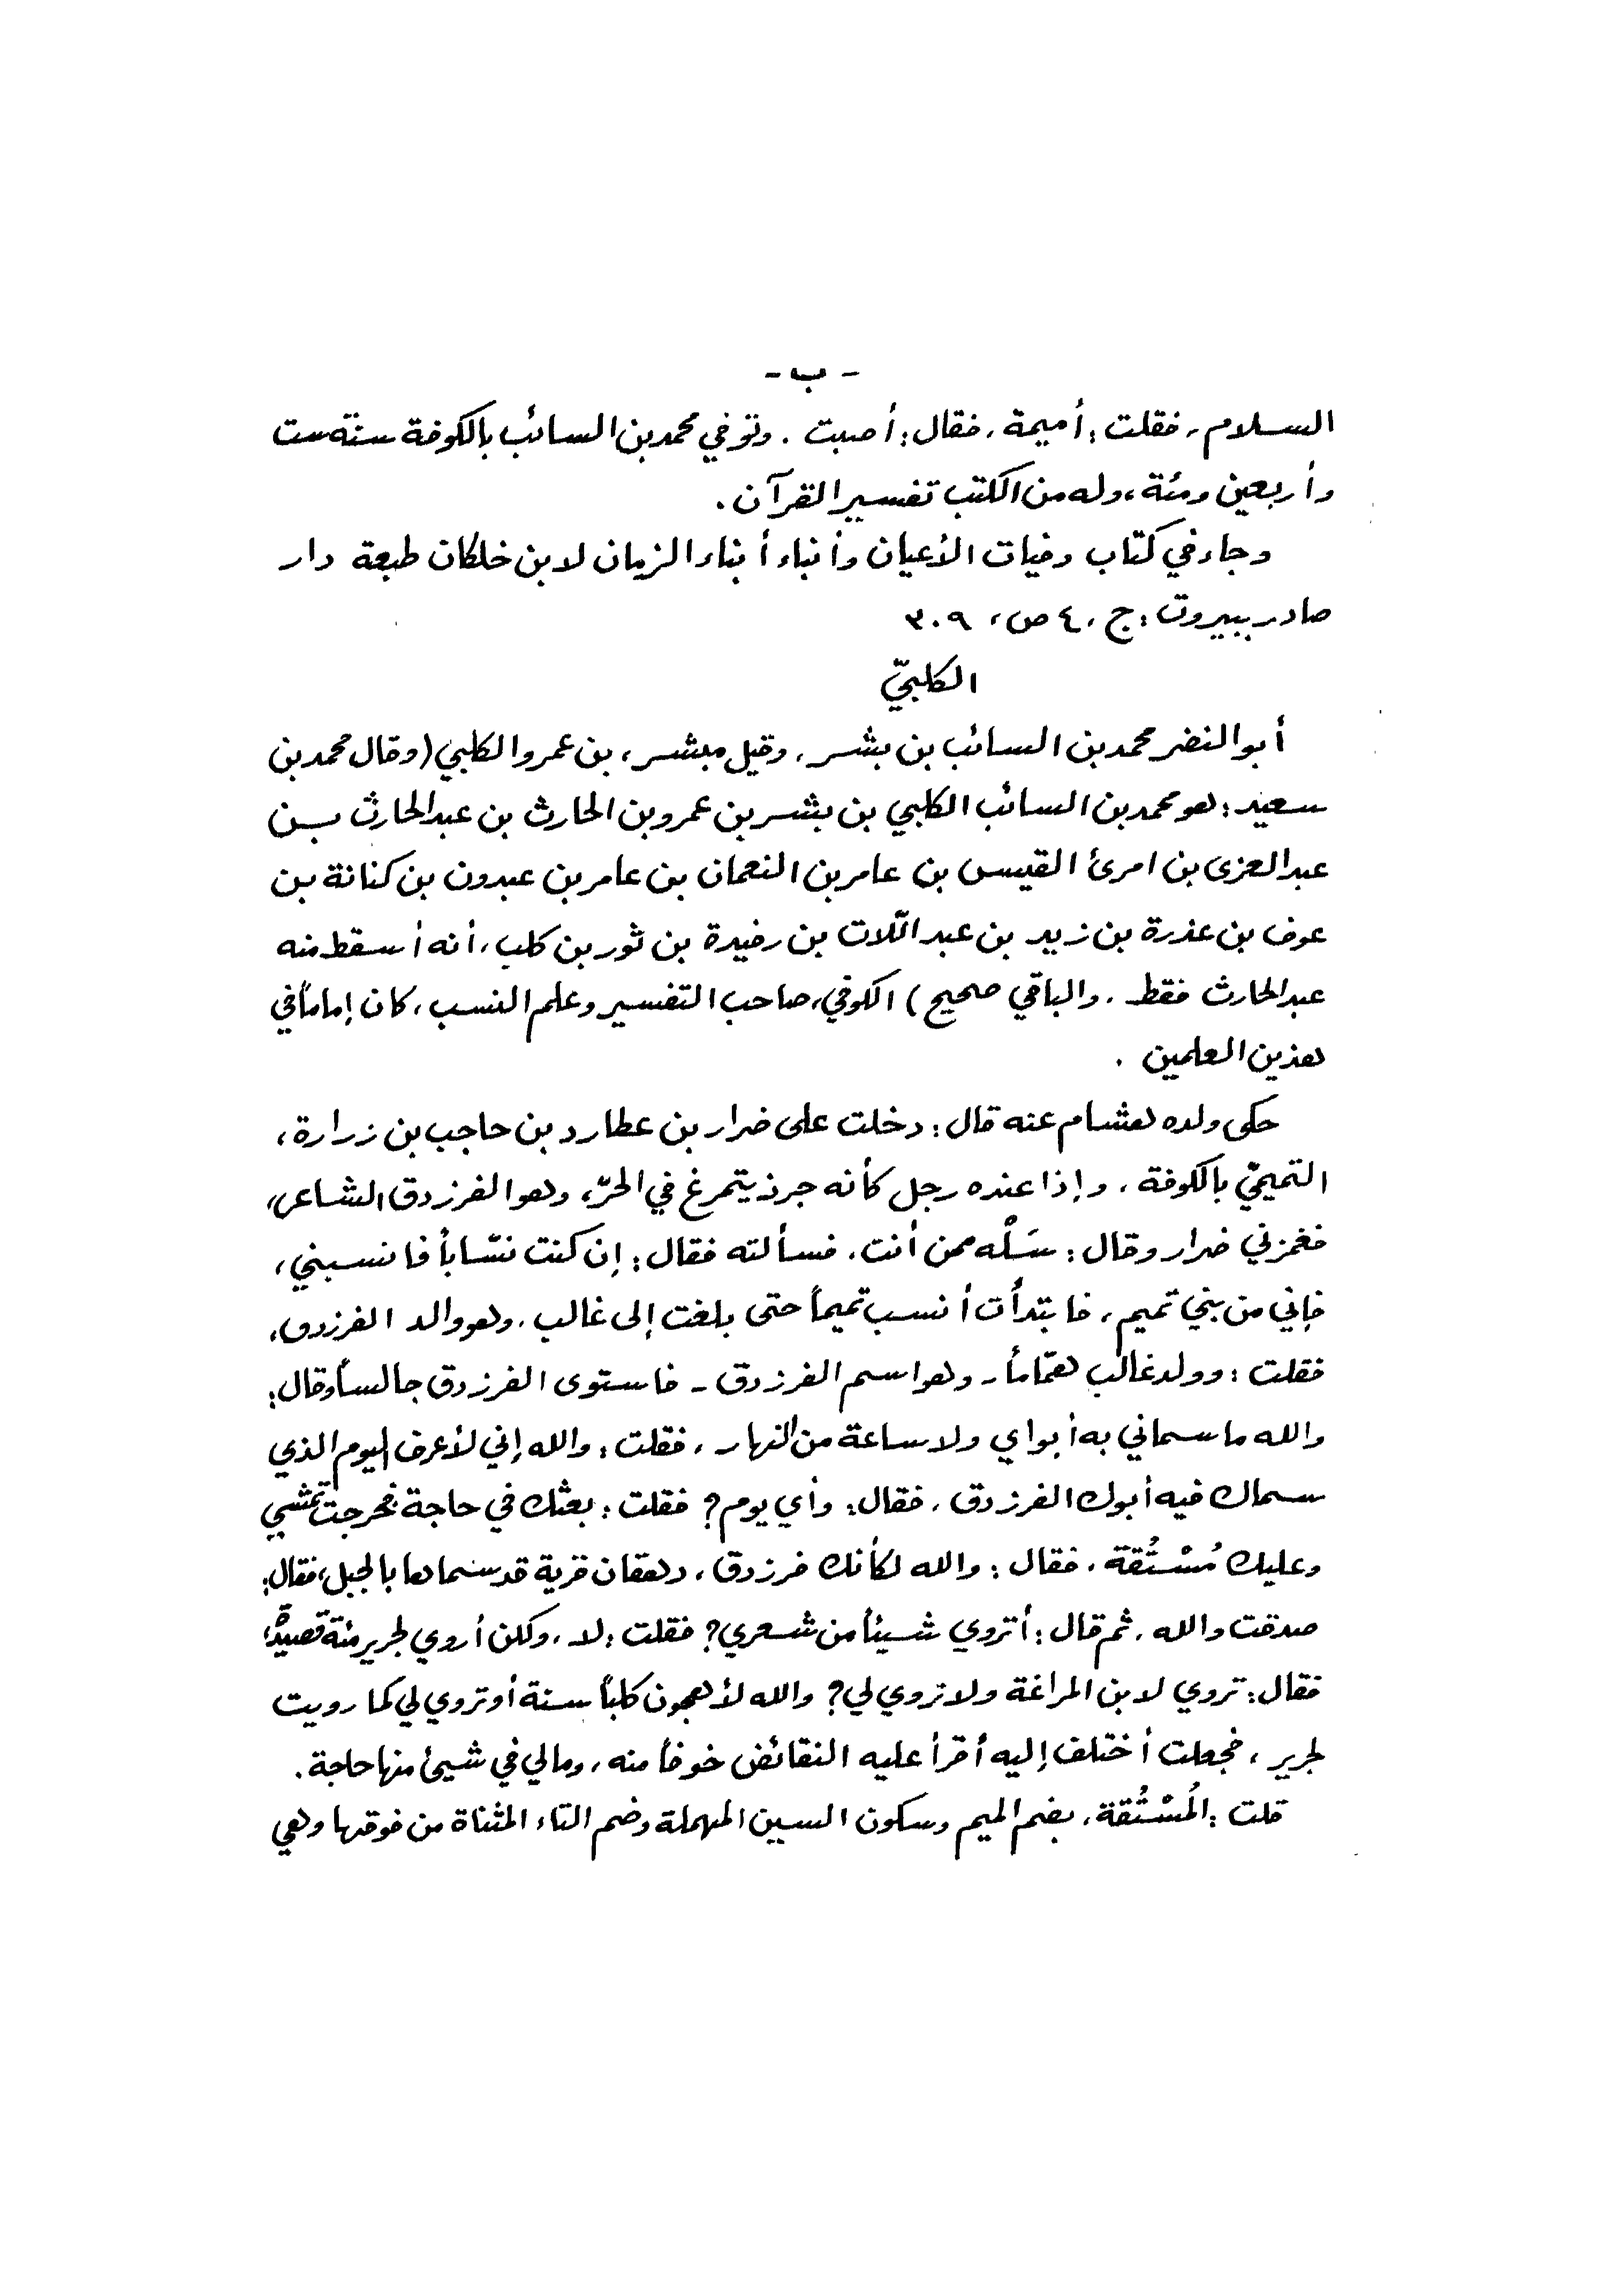 - ب -
السلام، فقلت: أميمة، فقال: أصبت. وتوفي محمد بن السائب بالكوفة سنة ست
وأربعين ومئة، وله من الكتب تفسير القرآن.
وجاء في كتاب وفيات الأعيان وأنباء أبناء الزمان لابن خلكان طبعة دار
صادر ببيروت: ج، ٤ ص، ٣٠٩
الكلبيّ
أبو النضر محمد بن السائب بن بشر، وقيل مبشر، بن عمرو الكلبي (وقال محمد بن
سعيد: هو محمد بن السائب الكلبي بن بشر بن عمرو بن الحارث بن عبد الحارث بن
عبد العزى بن امرئ القيس بن عامر بن النعمان بن عامر بن عبدون بن كنانة بن
عوف بن عذرة بن زيد بن عبد اللّات بن رفيدة بن ثور بن كلب، أنه أسقط منه
عبد الحارث فقط، والباقي صحيح) الكوفي، صاحب التفسير وعلم النسب، كان إماماً في
هذين العلمين.
حكى ولده هشام عنه قال: دخلت على ضرار بن عطارد بن حاجب بن زرارة،
التميميّ بالكوفة، وإذا عنده رجل كأنه جرذ يتمرغ في الحرّ، وهو الفرزدق الشاعر،
فغمزني ضرار وقال: سَلْه ممن أنت، فسألته فقال: إن كنت نسّاباً فانسبني،
فإني من بني تميم، فابتدأت أنسب تميماً حتى بلغت إلى غالب، وهو والد الفرزدق،
فقلت: وولد غالب همّاماً - وهو اسم الفرزدق - فاستوى الفرزدق جالساً وقال:
والله ما سماني به أبواي ولا ساعة من النهار، فقلت: والله إني لأعرف اليوم الذي
سماك فيه أبوك الفرزدق، فقال: وأي يوم؟ فقلت: بعثك في حاجة فخرجت تمشي
وعليك مُسْتُقة، فقال: والله لكأنك فرزدق، دهقان قرية قد سماها بالجبل، فقال:
صدقت والله، ثم قال: أتروي شيئاً من شعري؟ فقلت: لا، ولكن أروي لجرير مئة قصيدةٍ،
فقال: تروي لابن المراغة ولا تروي لي؟ والله لأهجون كلباً سنة أو تروي لي كما رويت
لجرير، فجعلت أختلف إليه أقرأ عليه النقائض خوفاً منه، ومالي في شيئ منها حاجة.
قلت: المُسْتُقة، بضم الميم وسكون السين المهملة وضم التاء المثناة من فوقها وهي